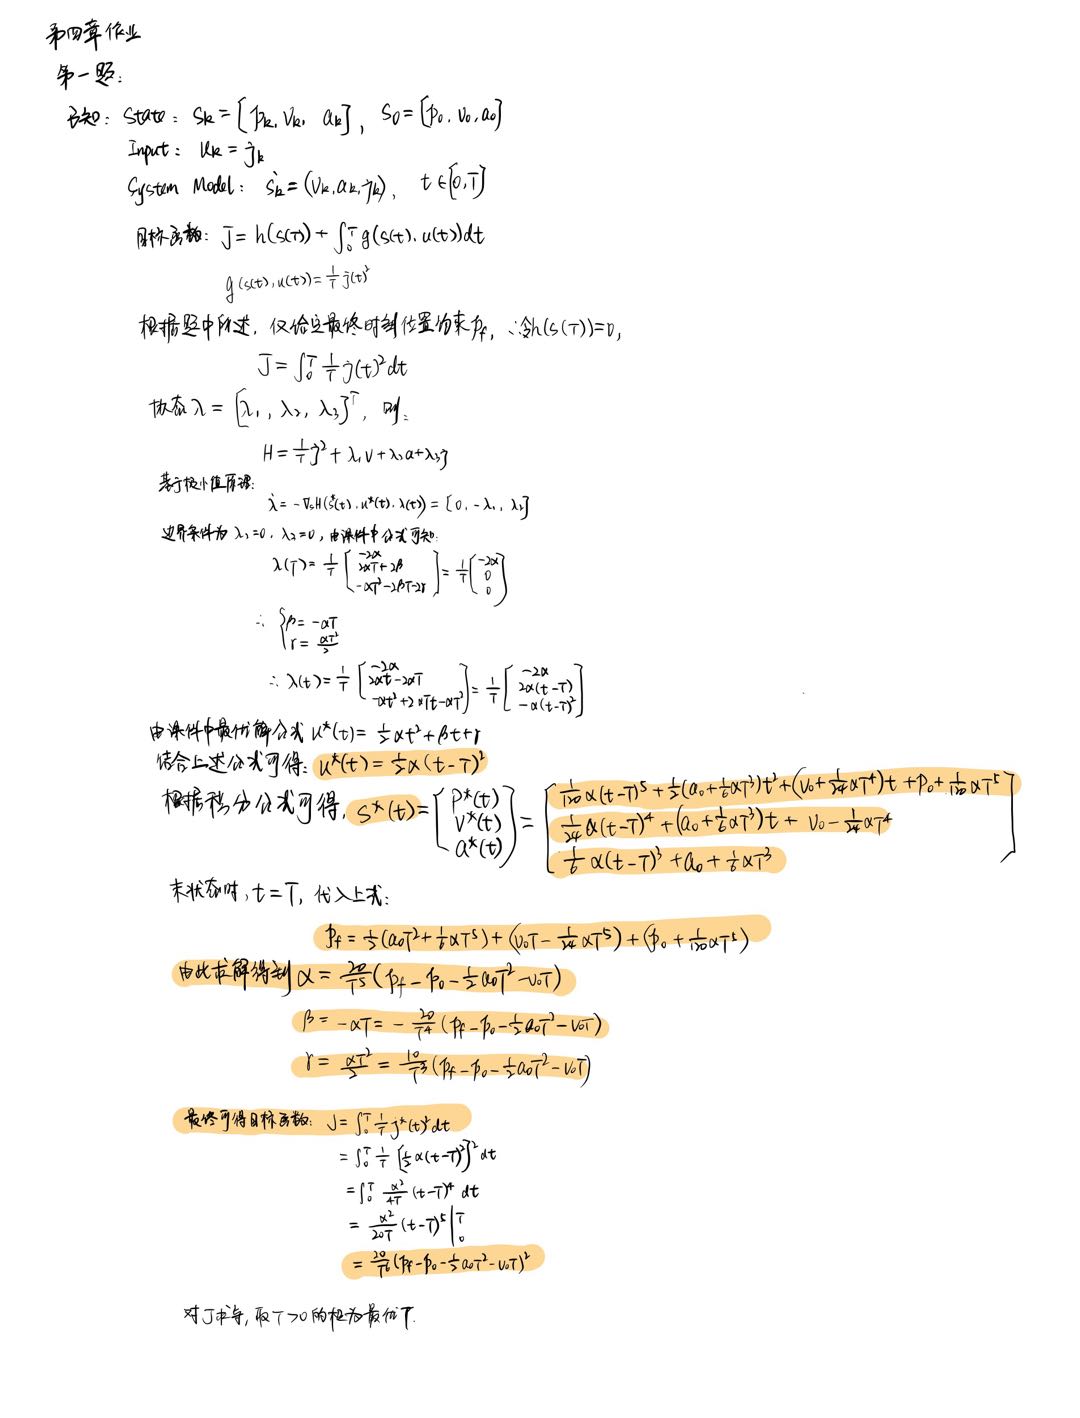 第四章作业
第一题:
已知: State: Sk = [Pk, Vk, ak], S0 = [p0, v0, a0]
Input: uk = jk
System Model: ṡk = (Vk, ak, jk), t∈[0,T]
目标函数: J = h(s(T)) + ∫₀ᵀ g(s(t), u(t))dt
g(s(t), u(t)) = 1/T j(t)²
根据题中所述, 仅给定最终时刻位置约束Pf, ∴令h(s(T))=0,
J = ∫₀ᵀ 1/T j(t)² dt
协态λ = [λ1, λ2, λ3]ᵀ, 则:
H = 1/T j² + λ1V + λ2a + λ3j
基于极小值原理:
λ̇ = -∇sH(s*(t), u*(t), λ(t)) = [0, -λ1, λ2]
边界条件为 λ2=0, λ3=0, 由课件中公式可知:
λ(T) = 1/T [-2α; 2αT+2β; -αT²-2βT-2r] = 1/T [-2α; 0; 0]
∴ { β = -αT
r = αT²/2
∴ λ(t) = 1/T [-2α; 2αt-2αT; -αt²+2αTt-αT²] = 1/T [-2α; 2α(t-T); -α(t-T)²]
由课件中最优解公式 u*(t) = 1/2 αt² + βt + r
结合上述公式可得: u*(t) = 1/2 α(t-T)²
根据积分公式可得, s*(t) = [P*(t); V*(t); a*(t)] = [1/120 α(t-T)⁵ + 1/2(a0+1/6 αT³)t² + (v0+1/24 αT⁴)t + p0 + 1/120 αT⁵; 1/24 α(t-T)⁴ + (a0+1/6 αT³)t + v0 - 1/24 αT⁴; 1/6 α(t-T)³ + a0 + 1/6 αT³]
末状态时, t=T, 代入上式:
Pf = 1/2(a0T²+1/6 αT⁵) + (v0T - 1/24 αT⁵) + (p0 + 1/120 αT⁵)
由此求解得到 α = 20/T⁵ (Pf - p0 - 1/2 a0T² - v0T)
β = -αT = -20/T⁴ (Pf - p0 - 1/2 a0T² - v0T)
r = αT²/2 = 10/T³ (Pf - p0 - 1/2 a0T² - v0T)
最终可得目标函数: J = ∫₀ᵀ 1/T j*(t)² dt
= ∫₀ᵀ 1/T [1/2 α(t-T)²]² dt
= ∫₀ᵀ α²/4T (t-T)⁴ dt
= α²/20T (t-T)⁵ |₀ᵀ
= 20/T⁶ (Pf - p0 - 1/2 a0T² - v0T)²
对J求导, 取T>0的根为最优T.